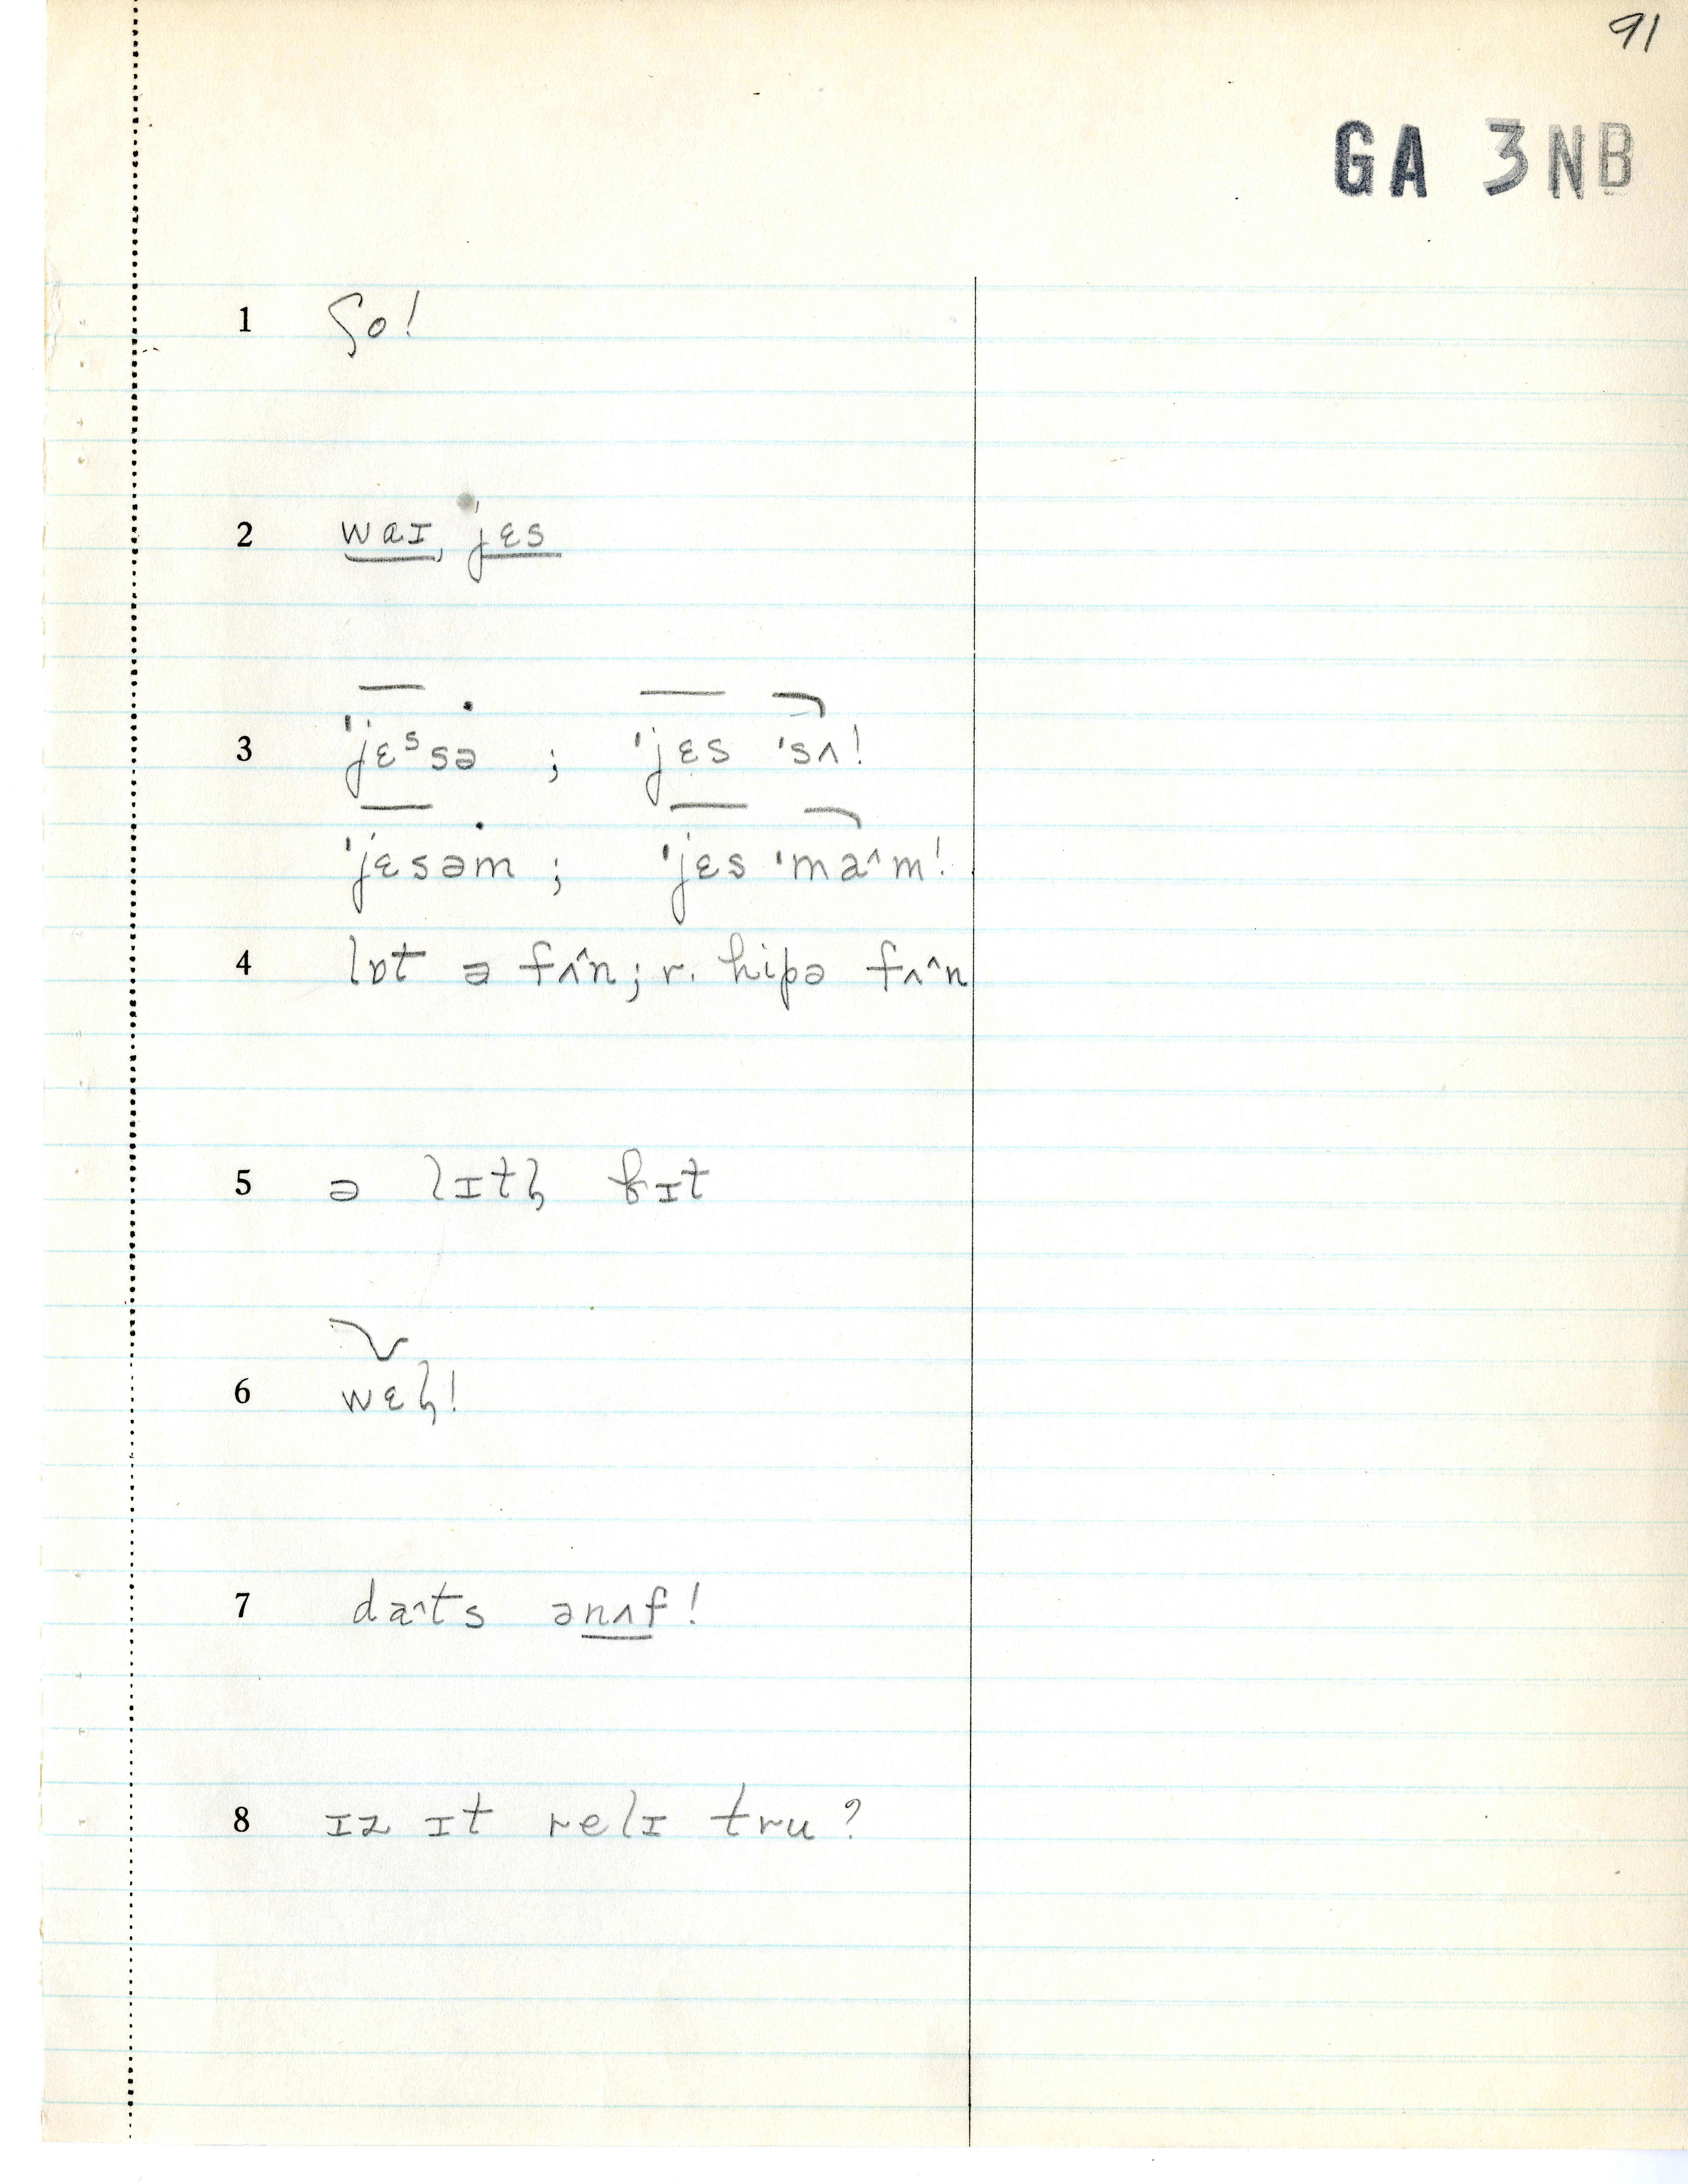 91
GA 3NB
1 ʃo!
2 waɪ, ˈjɛs
3 ˈjɛˢsə ; ˈjɛs ˈsʌ!
ˈjɛsəm ; ˈjɛs ˈma^m!
4 lɒt ə fʌ^n; r. hipə fʌ^n
5 ə lɪtɫ bɪt
6 wɛɫ!
7 da^ts ənʌf!
8 ɪz ɪt relɪ tru?